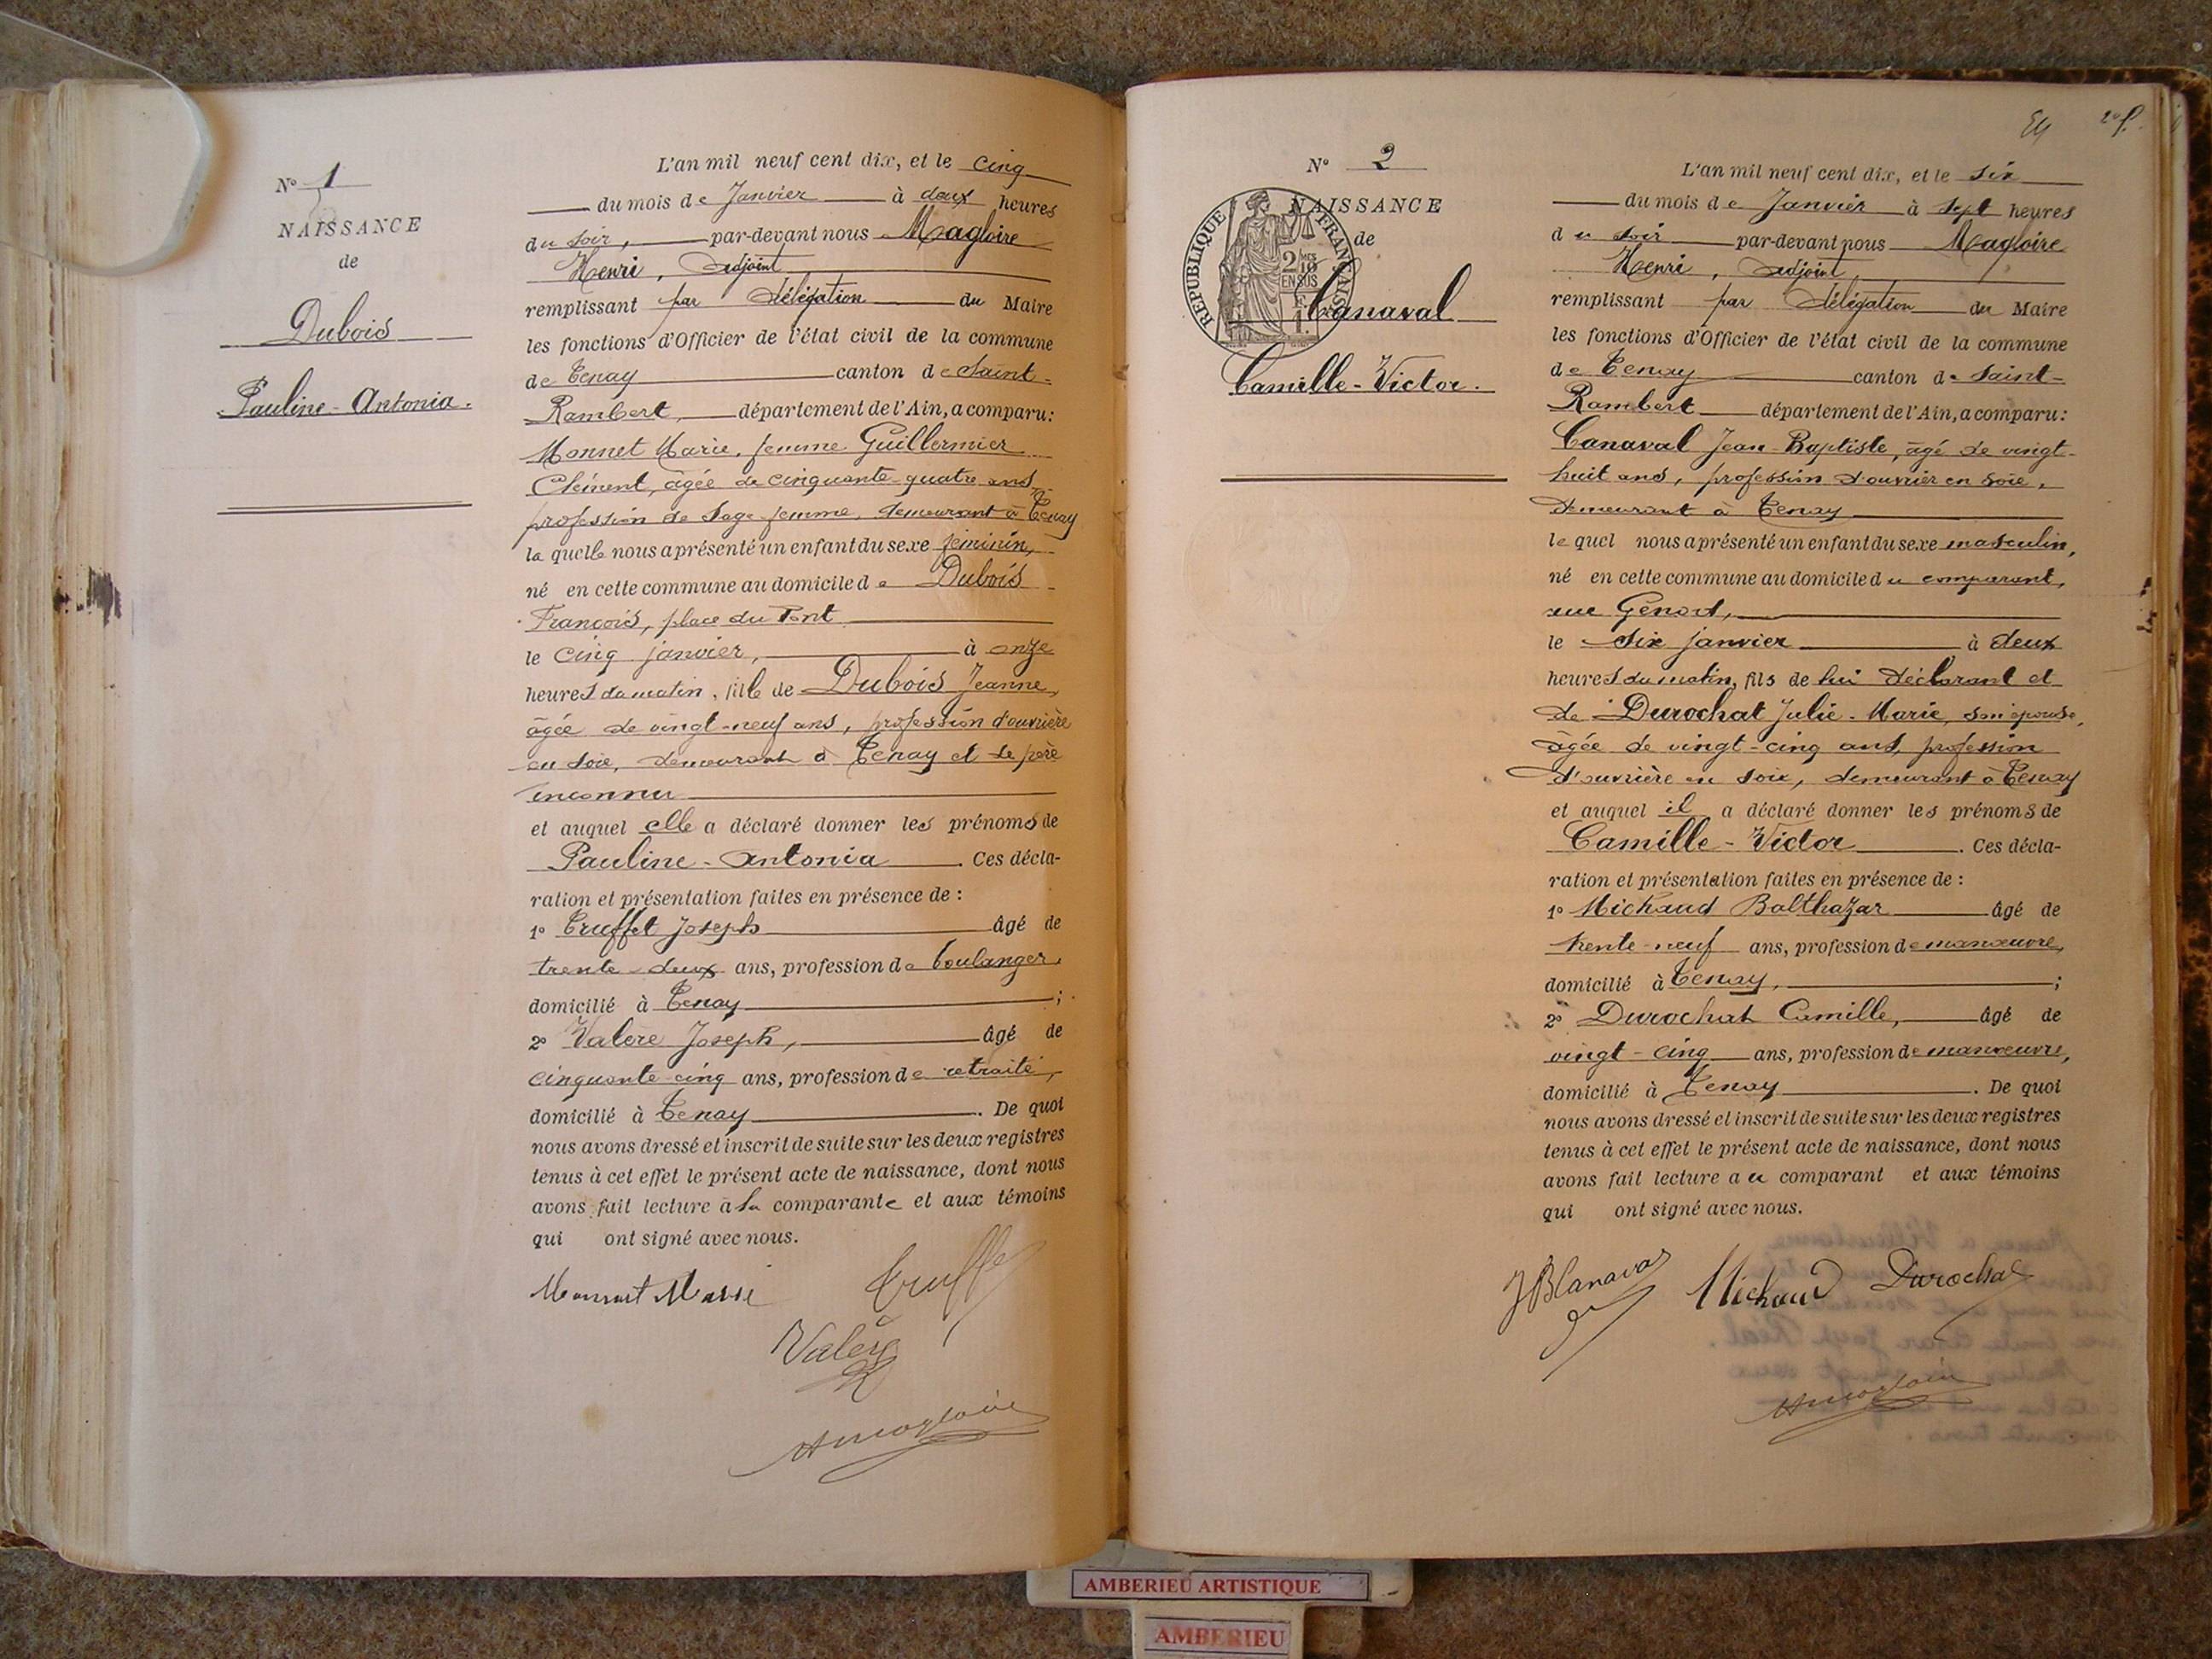 N° 1
NAISSANCE
de
Dubois
Pauline-Antonia.
L'an mil neuf cent dix, et le cinq
du mois de Janvier à deux heures
du soir, par-devant nous Magloire
Henri, adjoint
remplissant par délégation du Maire
les fonctions d'Officier de l'état civil de la commune
de Tenay canton de Saint-
Rambert, département de l'Ain, a comparu:
Monnet Marie, femme Guillermier
Clément, âgée de cinquante-quatre ans,
profession de Sage-femme, demeurant à Tenay
laquelle nous a présenté un enfant du sexe féminin,
né en cette commune au domicile de Dubois
François, place du Pont
le cinq janvier, à onze
heures du matin, fille de Dubois Jeanne,
âgée de vingt-neuf ans, profession d'ouvrière
en soie, demeurant à Tenay et de père
inconnu
et auquel elle a déclaré donner les prénoms de
Pauline-Antonia. Ces décla-
ration et présentation faites en présence de :
1° Truffet Joseph âgé de
trente-deux ans, profession de boulanger,
domicilié à Tenay ;
2° Valère Joseph, âgé de
cinquante-cinq ans, profession de retraité,
domicilié à Tenay. De quoi
nous avons dressé et inscrit de suite sur les deux registres
tenus à cet effet le présent acte de naissance, dont nous
avons fait lecture à la comparante et aux témoins
qui ont signé avec nous.
Marie
Valère
HMagloire
2° f.
N° 2
NAISSANCE
de
RÉPUBLIQUE FRANÇAISE
2/10 EN SUS
Canaval
Camille-Victor.
L'an mil neuf cent dix, et le six
du mois de Janvier à sept heures
du soir par-devant nous Magloire
Henri, adjoint,
remplissant par délégation du Maire
les fonctions d'Officier de l'état civil de la commune
de Tenay canton de Saint-
Rambert département de l'Ain, a comparu:
Canaval Jean-Baptiste, âgé de vingt-
huit ans, profession d'ouvrier en soie,
demeurant à Tenay
lequel nous a présenté un enfant du sexe masculin,
né en cette commune au domicile du comparant,
rue Génod,
le six janvier à deux
heures du matin, fils de lui déclarant et
de Durochat Julie-Marie, son épouse,
âgée de vingt-cinq ans, profession
d'ouvrière en soie, demeurant à Tenay
et auquel il a déclaré donner les prénoms de
Camille-Victor. Ces décla-
ration et présentation faites en présence de :
1° Michaud Balthazar âgé de
trente-neuf ans, profession de manœuvre,
domicilié à Tenay, ;
2° Durochat Camille, âgé de
vingt-cinq ans, profession de manœuvre,
domicilié à Tenay. De quoi
nous avons dressé et inscrit de suite sur les deux registres
tenus à cet effet le présent acte de naissance, dont nous
avons fait lecture au comparant et aux témoins
qui ont signé avec nous.
JBCanaval Michaud Durochat
HMagloire
AMBERIEU ARTISTIQUE
AMBERIEU